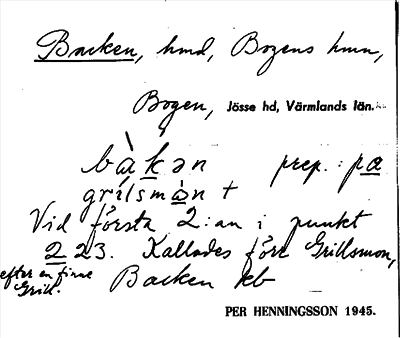 Backen, hmd, Bogens hmn,
Bogen, Jösse hd, Värmlands län.
bàkən prep.: pa
grilsmàn +
Vid första 2:an i punkt
223. Kallades förr Grillsmon,
efter en finne
Grill.
Backen kb
PER HENNINGSSON 1945.